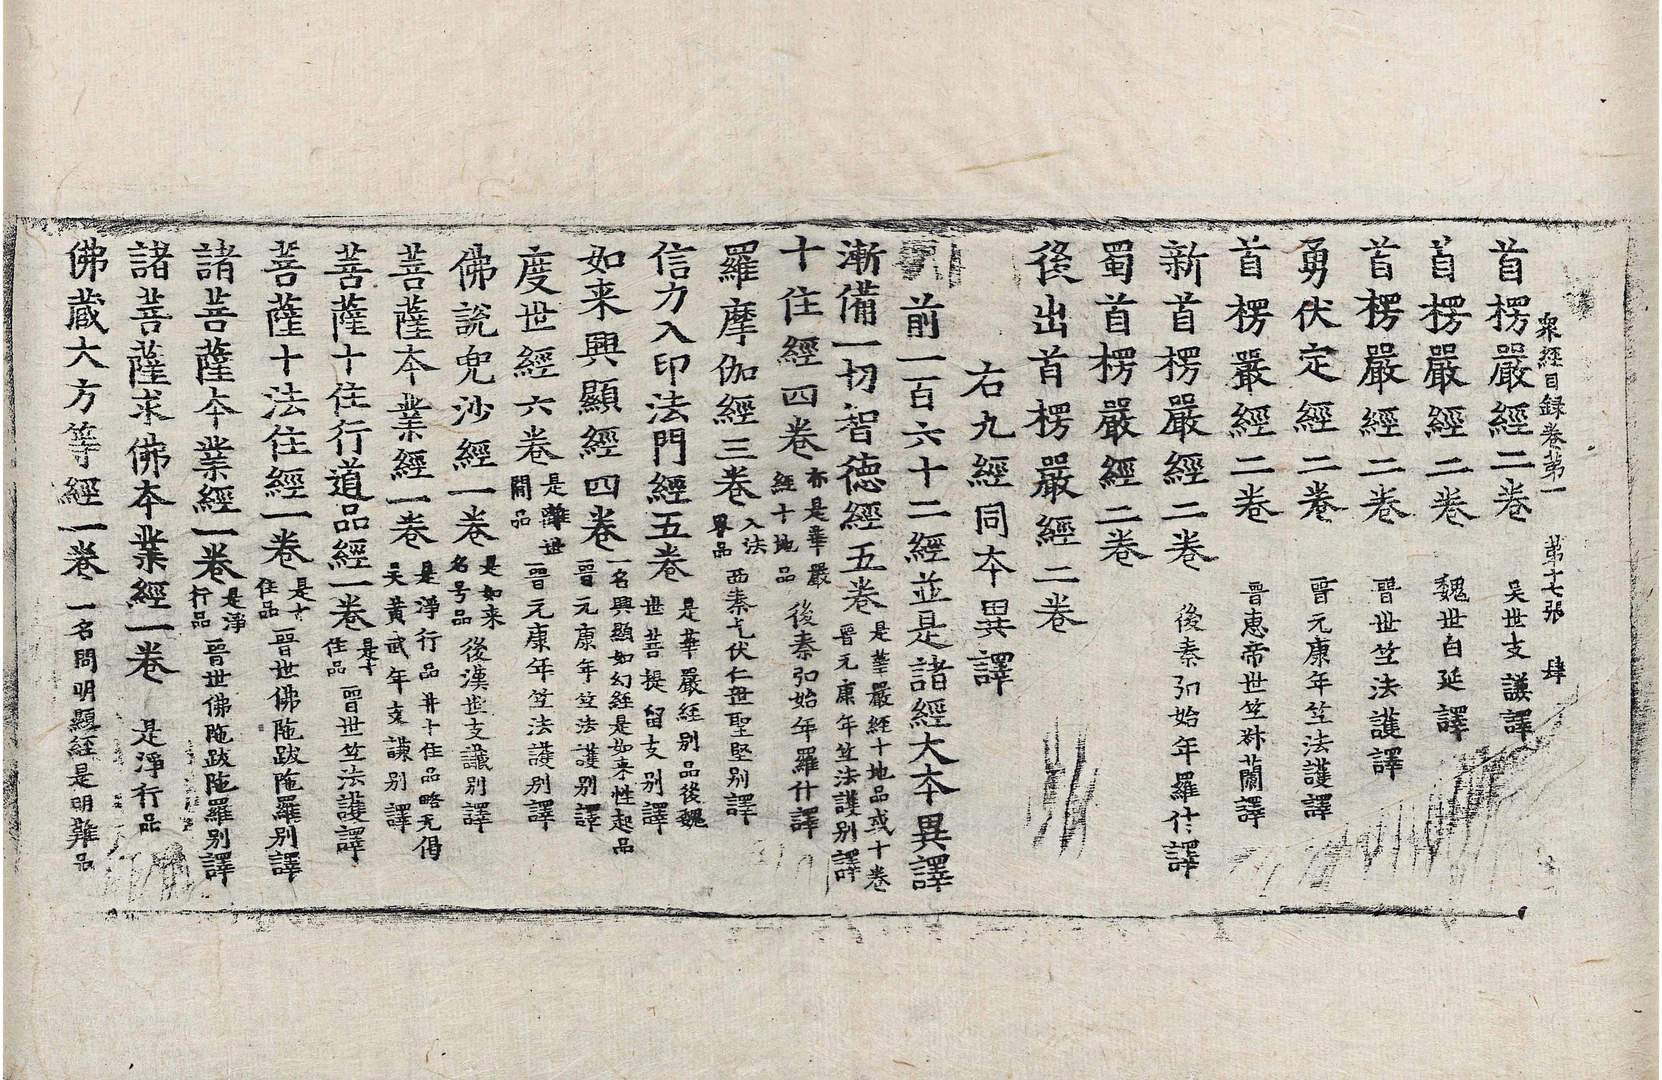 衆經目録卷第一 第十七張 肆
首楞嚴經二卷 吴世支謙譯
首楞嚴經二卷 魏世白延譯
首楞嚴經二卷 晉世竺法護譯
勇伏定經二卷 晉元康年竺法護譯
首楞嚴經二卷 晉惠帝世竺𫝊蘭譯
新首楞嚴經二卷 後秦弘始年羅什譯
蜀首楞嚴經二卷
後出首楞嚴經二卷
右九經同本異譯
前一百六十二經並是諸經大本異譯
漸備一切智德經五卷 是華嚴經十地品或十卷晉元康年竺法護别譯
十住經四卷 亦是華嚴經十地品 後秦弘始年羅什譯
羅摩伽經三卷 入法界品 西秦乞伏仁世聖堅别譯
信力入印法門經五卷 是華嚴經别品後魏世菩提留支别譯
如来興顯經四卷 一名興顯如幻經是如来性起品晉元康年竺法護别譯
度世經六卷 是離世間品 晉元康年竺法護别譯
佛說兜沙經一卷 是如来名号品 後漢世支讖别譯
菩薩本業經一卷 是淨行品并十住品略无偈吴黄武年支謙别譯
菩薩十住行道品經一卷 是十住品 晉世竺法護譯
菩薩十法住經一卷 是十住品 晉世佛陁跋陁羅别譯
諸菩薩本業經一卷 是淨行品 晉世佛陁跋陁羅别譯
諸菩薩求佛本業經一卷 是淨行品
佛藏大方等經一卷 一名問明顯經是明難品